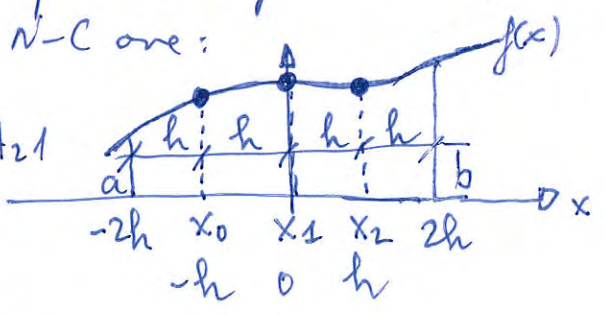 N-C one:
f(x)
h h h h
a b
-2h x₀ x₁ x₂ 2h x
-h 0 h